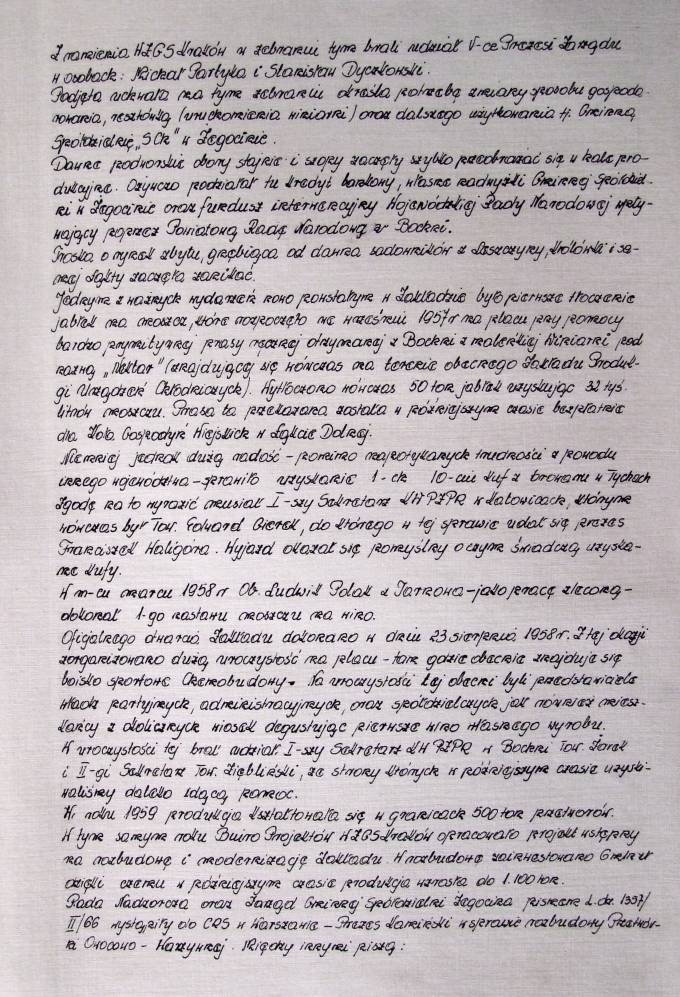 Z ramienia WZGS Kraków w zebraniu tym brali udział V-ce Prezesi Zarządu
w osobach: Michał Partyka i Stanisław Dyczkowski.
Podjęta uchwała na tym zebraniu określa potrzebę zmiany sposobu gospoda-
rowania, resztówką (uruchomienia winiarni) oraz dalszego użytkowania tj. Gminną
Spółdzielnię „SCh" w Żegocinie.
Dawne podworskie obory stajnie i szopy zaczęły szybko przeobrażać się w hale pro-
dukcyjne. Ożywczo podziałał tu kredyt bankowy, własne nadwyżki Gminnej Spółdziel-
ni w Żegocinie oraz fundusz interwencyjny Wojewódzkiej Rady Narodowej wpły-
wający poprzez Powiatową Radę Narodową w Bochni.
Troska o rynek zbytu, gnębiąca od dawna sadowników z Leszczyny, Królówki i sa-
mej Łąkty zaczęła zanikać.
Jednym z ważnych wydarzeń nowo powstałym w Zakładzie było pierwsze tłoczenie
jabłek na moszcz, które rozpoczęto we wrześniu 1957r na placu przy pomocy
bardzo prymitywnej prasy ręcznej otrzymanej z Bochni z maleńkiej Winiarni pod
nazwą „Nektar" (znajdującej się wówczas na terenie obecnego Zakładu Produk-
cji Urządzeń Chłodniczych). Wytłoczono wówczas 50 ton jabłek uzyskując 32 tyś.
litrów moszczu. Prasa ta przekazana została w późniejszym czasie bezpłatnie
dla Koła Gospodyń Wiejskich w Łąkcie Dolnej.
Niemniej jednak dużą radość - pomimo napotykanych trudności z powodu
innego województwa - sprawiło uzyskanie 1-ch 10-ciu kuf z browaru w Tychach
Zgodę na to wyrazić musiał I-szy Sekretarz KW PZPR w Katowicach, którym
wówczas był Tow. Edward Gierek, do którego w tej sprawie udał się prezes
Franciszek Waligóra. Wyjazd okazał się pomyślny o czym świadczą uzyska-
ne kufy.
W m-cu marcu 1958r Ob. Ludwik Polak z Tarnowa - jako pracę zleconą -
dokonał 1-go nastawu moszczu na wino.
Oficjalnego otwarcia Zakładu dokonano w dniu 23 sierpnia 1958r. Z tej okazji
zorganizowano dużą uroczystość na placu - tam gdzie obecnie znajduje się
boisko sportowe Chemobudowy. Na uroczystości tej obecni byli przedstawiciele
władz partyjnych, administracyjnych, oraz spółdzielczych jak również miesz-
kańcy z okolicznych wiosek degustując pierwsze wino własnego wyrobu.
W uroczystości tej brał udział I-szy Sekretarz KW PZPR w Bochni Tow. Żurek
i II-gi Sekretarz Tow. Ziębliński, ze strony których w późniejszym czasie uzyski-
waliśmy daleko idącą pomoc.
W roku 1959 produkcja kształtowała się w granicach 500 ton przetworów.
W tym samym roku Biuro Projektów WZGS Kraków opracowało projekt wstępny
na rozbudowę i modernizację Zakładu. W rozbudowę zainwestowano
dzięki czemu w późniejszym czasie produkcja wzrosła do 1.100 ton.
Rada Nadzorcza oraz Zarząd Gminnej Spółdzielni Żegocina pismem L.dz. 1357/
II/66 wystąpiły do CRS w Warszawie - Prezes Kamiński w sprawie rozbudowy Przetwór-
ni Owocowo - Warzywnej. Między innymi piszą: